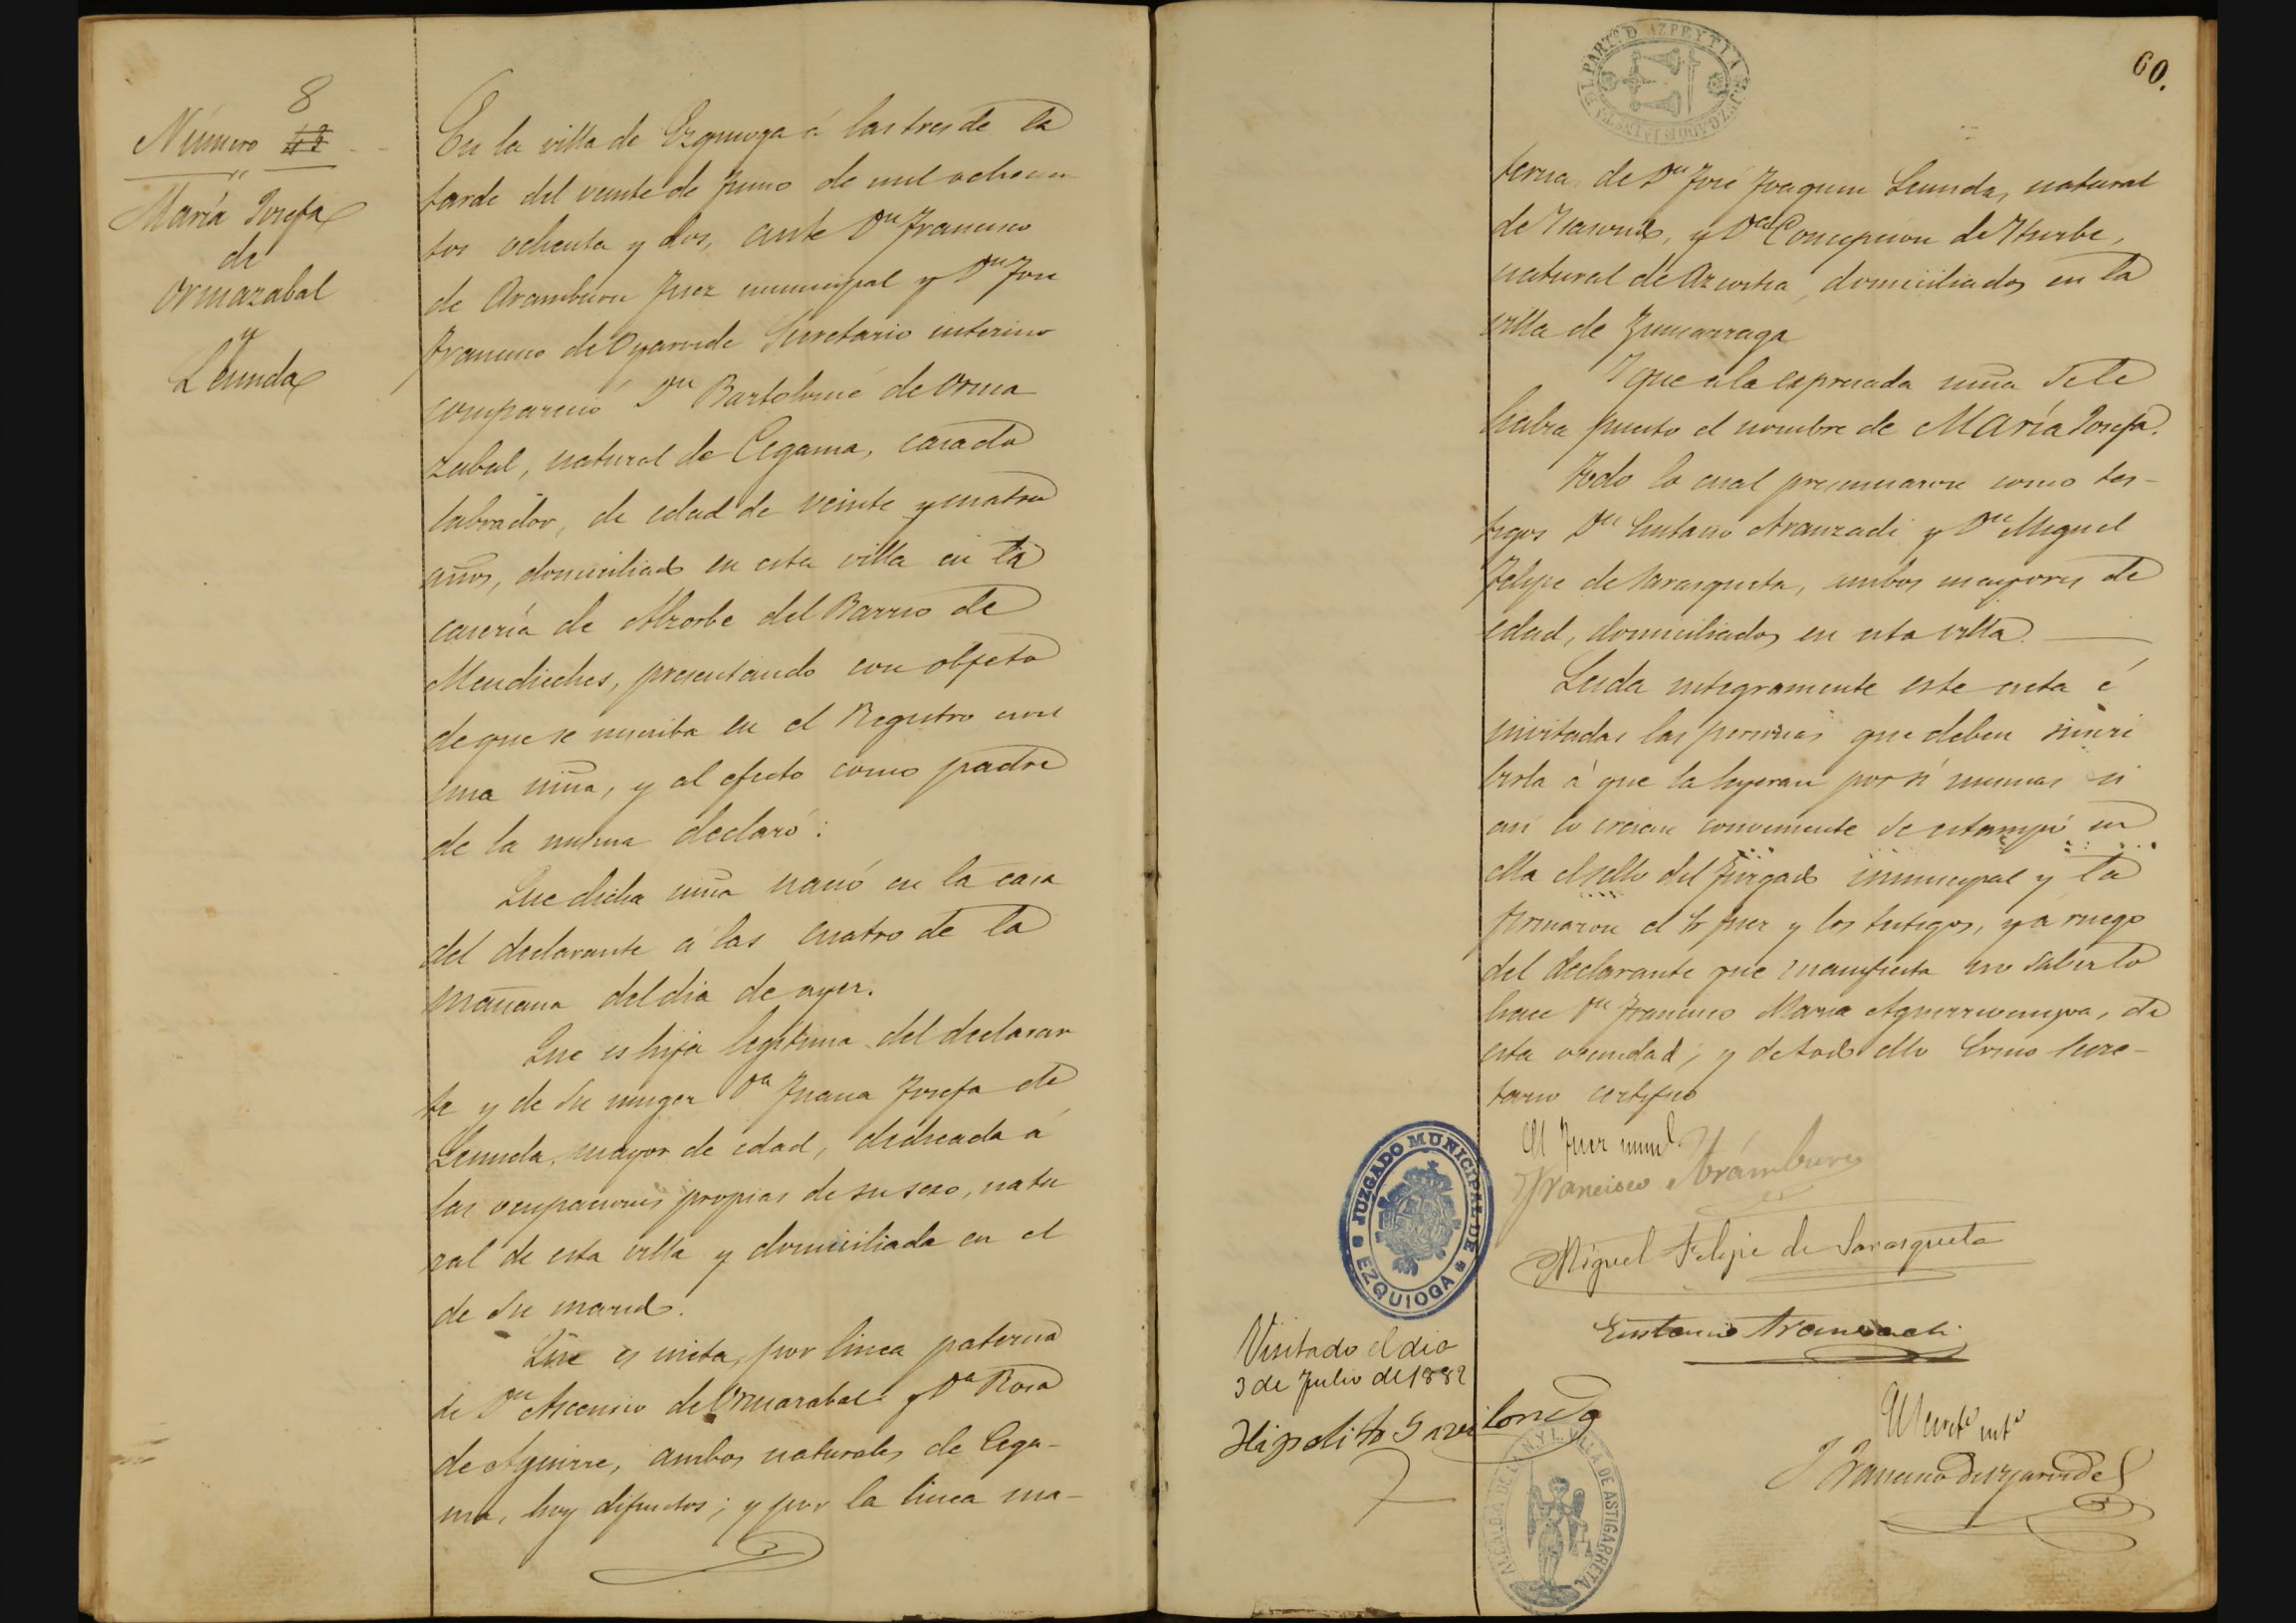 8
Número 12
María Josefa
de
Ormazabal
y
Leunda
En la villa de Ezquioga á las tres de la
tarde del veinte de Junio de mil ochocien
tos ochenta y dos, ante Dn Francisco
de Aramburu Juez municipal y Dn José
Francisco de Oyarvide Secretario interino
compareció Dn Bartolomé de Orma
zabal, natural de Cegama, casado
labrador, de edad de veinte y cuatro
años, domiciliado en esta villa en la
casería de Alzorbe del Barrio de
presentando con objeto
de que se inscriba en el Registro civil
una niña, y al efecto como padre
de la misma declaró:
Que dicha niña nació en la casa
del declarante á las cuatro de la
mañana del dia de ayer.
Que es hija legitima del declaran
te y de su muger Da Juana Josefa de
Leunda, mayor de edad, dedicada á
las ocupaciones propias de su sexo, natu
ral de esta villa y domiciliada en el
de su marido.
Que es nieta, por linea paterna
de Dn Ascensio de Ormazabal y Da Rosa
de Aguirre, ambos naturales de Cega-
ma, hoy difuntos; y por la linea ma-
60.
JUZGADO DE 1A INSTA DEL PARTO D AZPEYTIA
terna de Dn José Joaquin Leunda, natural
de y Da Concepcion de Yturbe,
natural de Azcoitia, domiciliados en la
villa de Zumarraga
Y que a la espresada niña se le
habia puesto el nombre de María Josefa.
Todo lo cual presenciaron como tes-
tigos Dn Eustasio Aranzadi y Dn Miguel
Felipe de Sarasqueta, ambos mayores de
edad, domiciliados en esta villa.
Leida integramente este acta é
invitadas las personas que deben suscri
birla á que la leyeran por sí mismas si
asi lo creian conveniente se estampó en
ella el sello del Juzgado municipal y la
firmaron el Sr Juez y los testigos, y á ruego
del declarante que manifiesta no saberlo
hace Dn Francisco Maria de
esta vecindad; y de todo ello como Secre-
tario certifico
El Juez munl
Francisco Arámburu
Miguel Felipe de Sarasqueta
JUZGADO MUNICIPAL DE EZQUIOGA
Eustasio Aranzadi
Visitado el dia
3 de Julio de 1882
Hipolito
El Secreto into
J Francisco de Oyarvide
ALCALDIA DE LA N. Y L. VILLA DE ASTIGARRETA